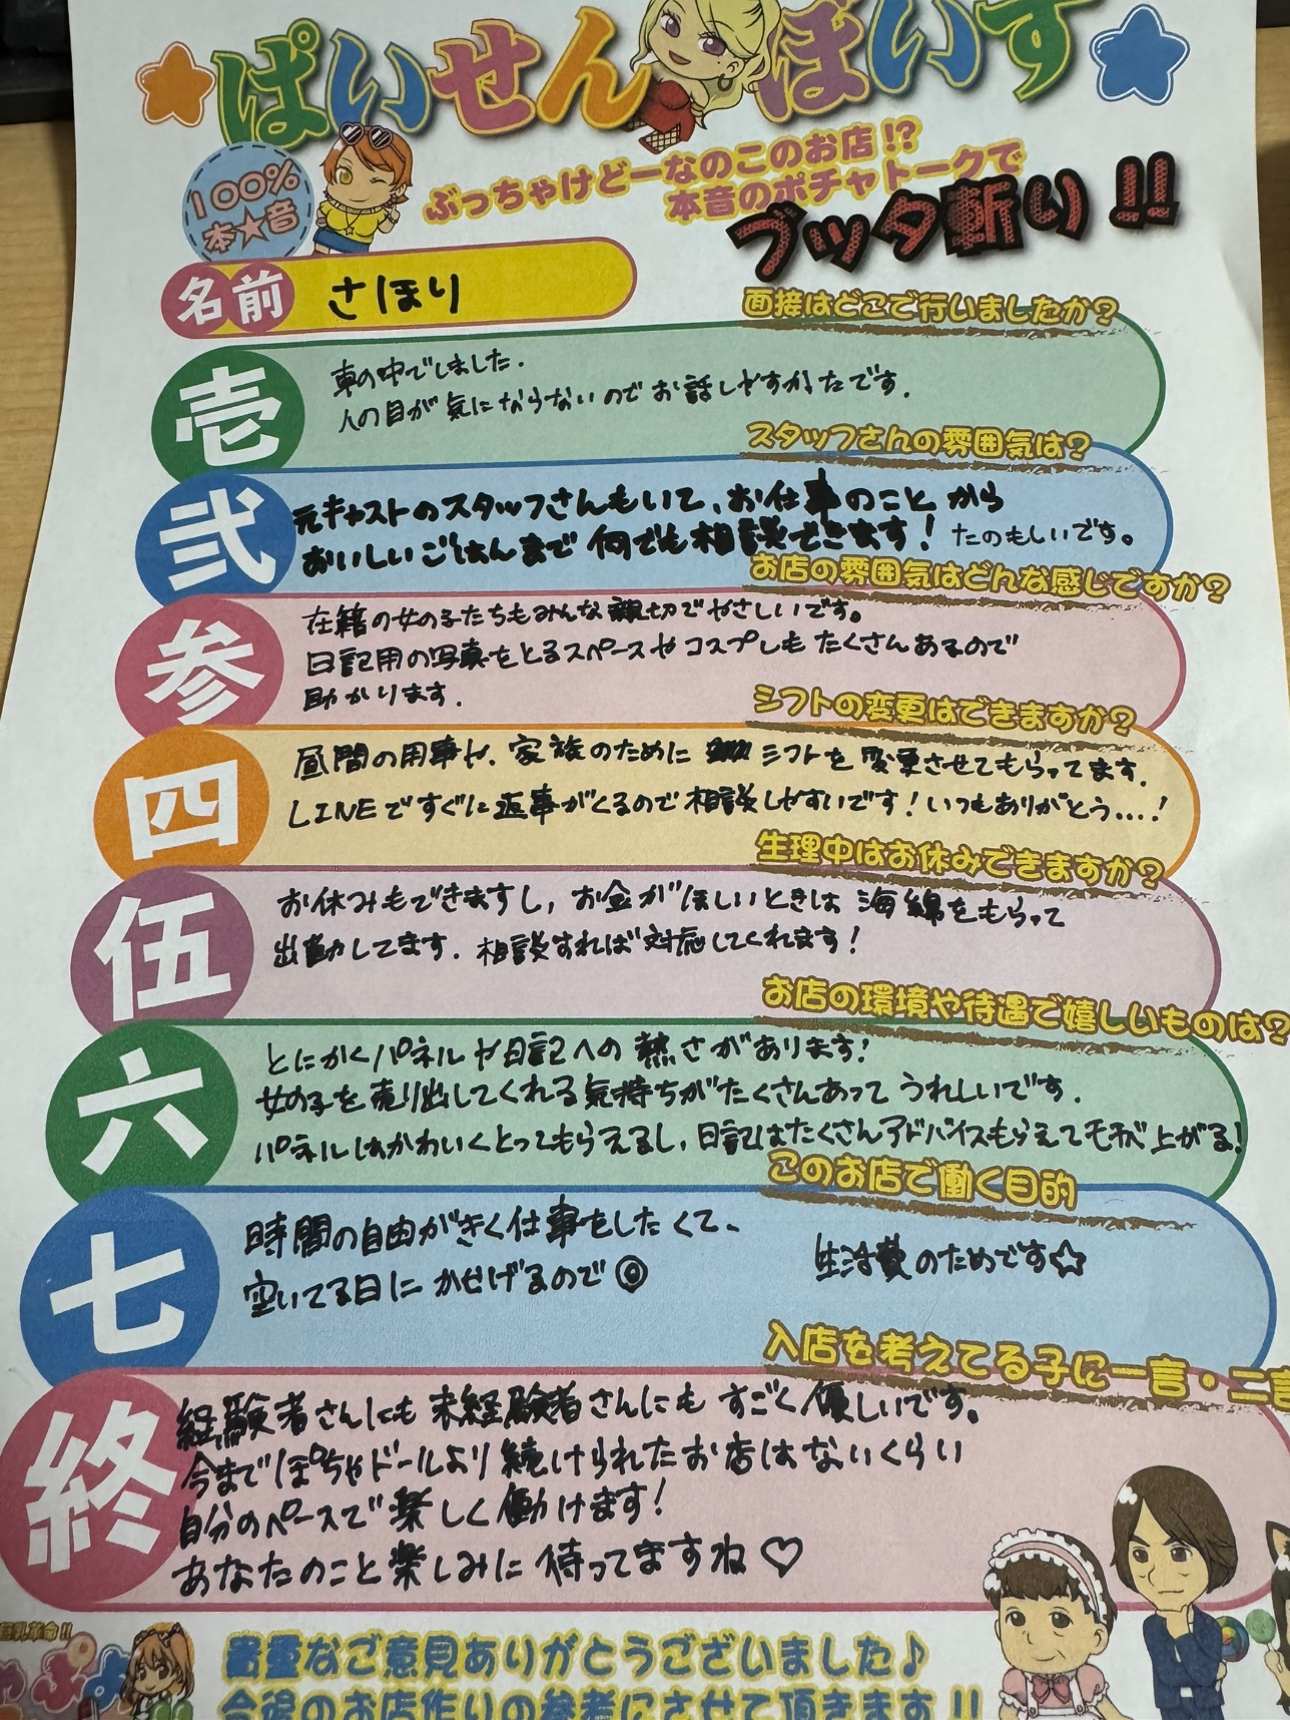 ぱいせんぼいす
100%
本★音
ぶっちゃけどーなのこのお店!?
本音のポチャトークで
ブッタ斬り!!
名前 さほり
面接はどこで行いましたか?
壱
車の中でしました.
人の目が気にならないのでお話しやすかったです.
スタッフさんの雰囲気は?
弐
元キャストのスタッフさんもいて、お仕事のことから
おいしいごはんまで何でも相談できます! たのもしいです。
お店の雰囲気はどんな感じですか?
参
在籍の女の子たちもみんな親切でやさしいです。
日記用の写真をとるスペースやコスプレもたくさんあるので
助かります.
シフトの変更はできますか?
四
昼間の用事や、家族のためにシフトを変更させてもらってます.
LINEですぐに返事がくるので相談しやすいです!いつもありがとう....!
生理中はお休みできますか?
伍
お休みもできますし, お金がほしいときは海綿をもらって
出勤してます. 相談すれば対応してくれます!
お店の環境や待遇で嬉しいものは?
六
とにかくパネルや日記への熱さがあります!
女の子を売り出してくれる気持ちがたくさんあってうれしいです.
パネルはかわいくとってもらえるし, 日記はたくさんアドバイスもらえてモチベ上がる!
このお店で働く目的
七
時間の自由がきく仕事をしたくて、
空いてる日にかせげるので◎
生活費のためです☆
入店を考えてる子に一言・二言
終
経験者さんにも未経験者さんにもすごく優しいです。
今までぽちゃドールより続けられたお店はないくらい
自分のペースで楽しく働けます!
あなたのこと楽しみに待ってますね♡
貴重なご意見ありがとうございました♪
今後のお店作りの参考にさせて頂きます!!